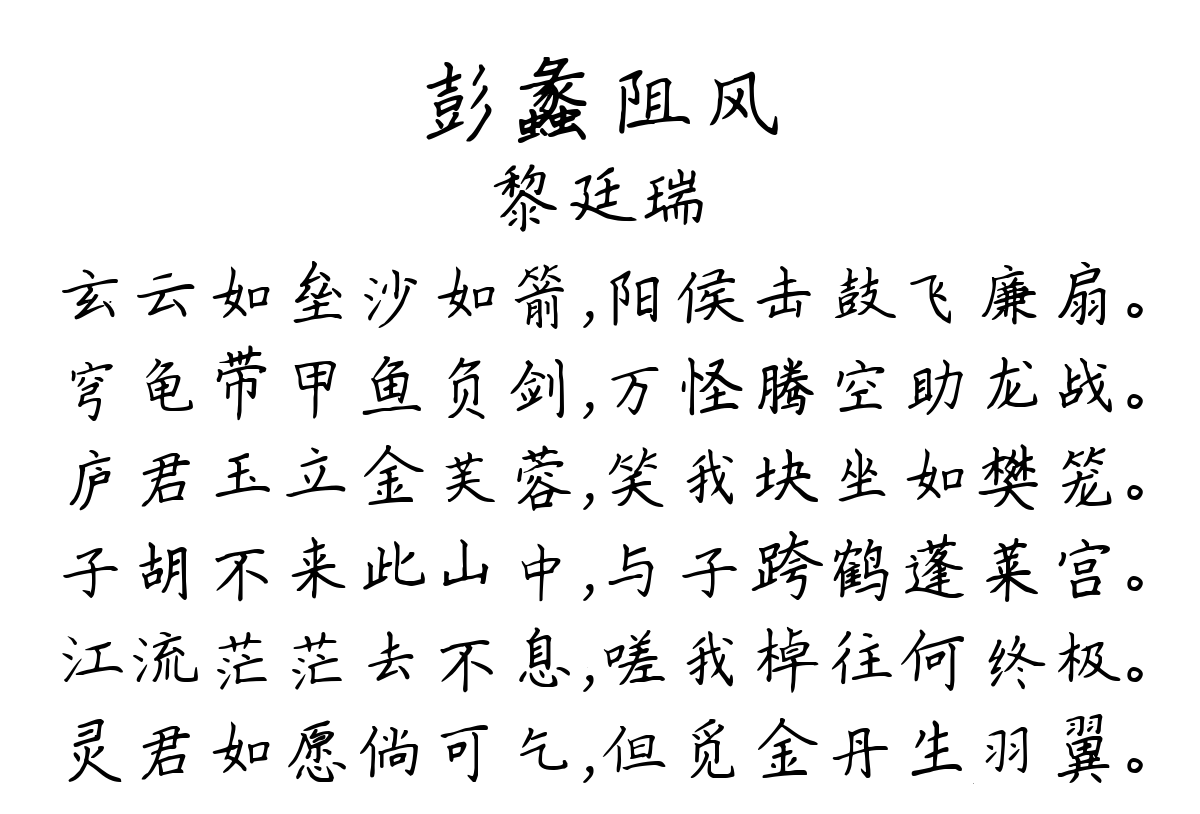 彭蠡阻风
黎廷瑞
玄云如垒沙如箭,阳侯击鼓飞廉扇。
穹龟带甲鱼负剑,万怪腾空助龙战。
庐君玉立金芙蓉,笑我块坐如樊笼。
子胡不来此山中,与子跨鹤蓬莱宫。
江流茫茫去不息,嗟我棹往何终极。
灵君如愿倘可乞,但觅金丹生羽翼。